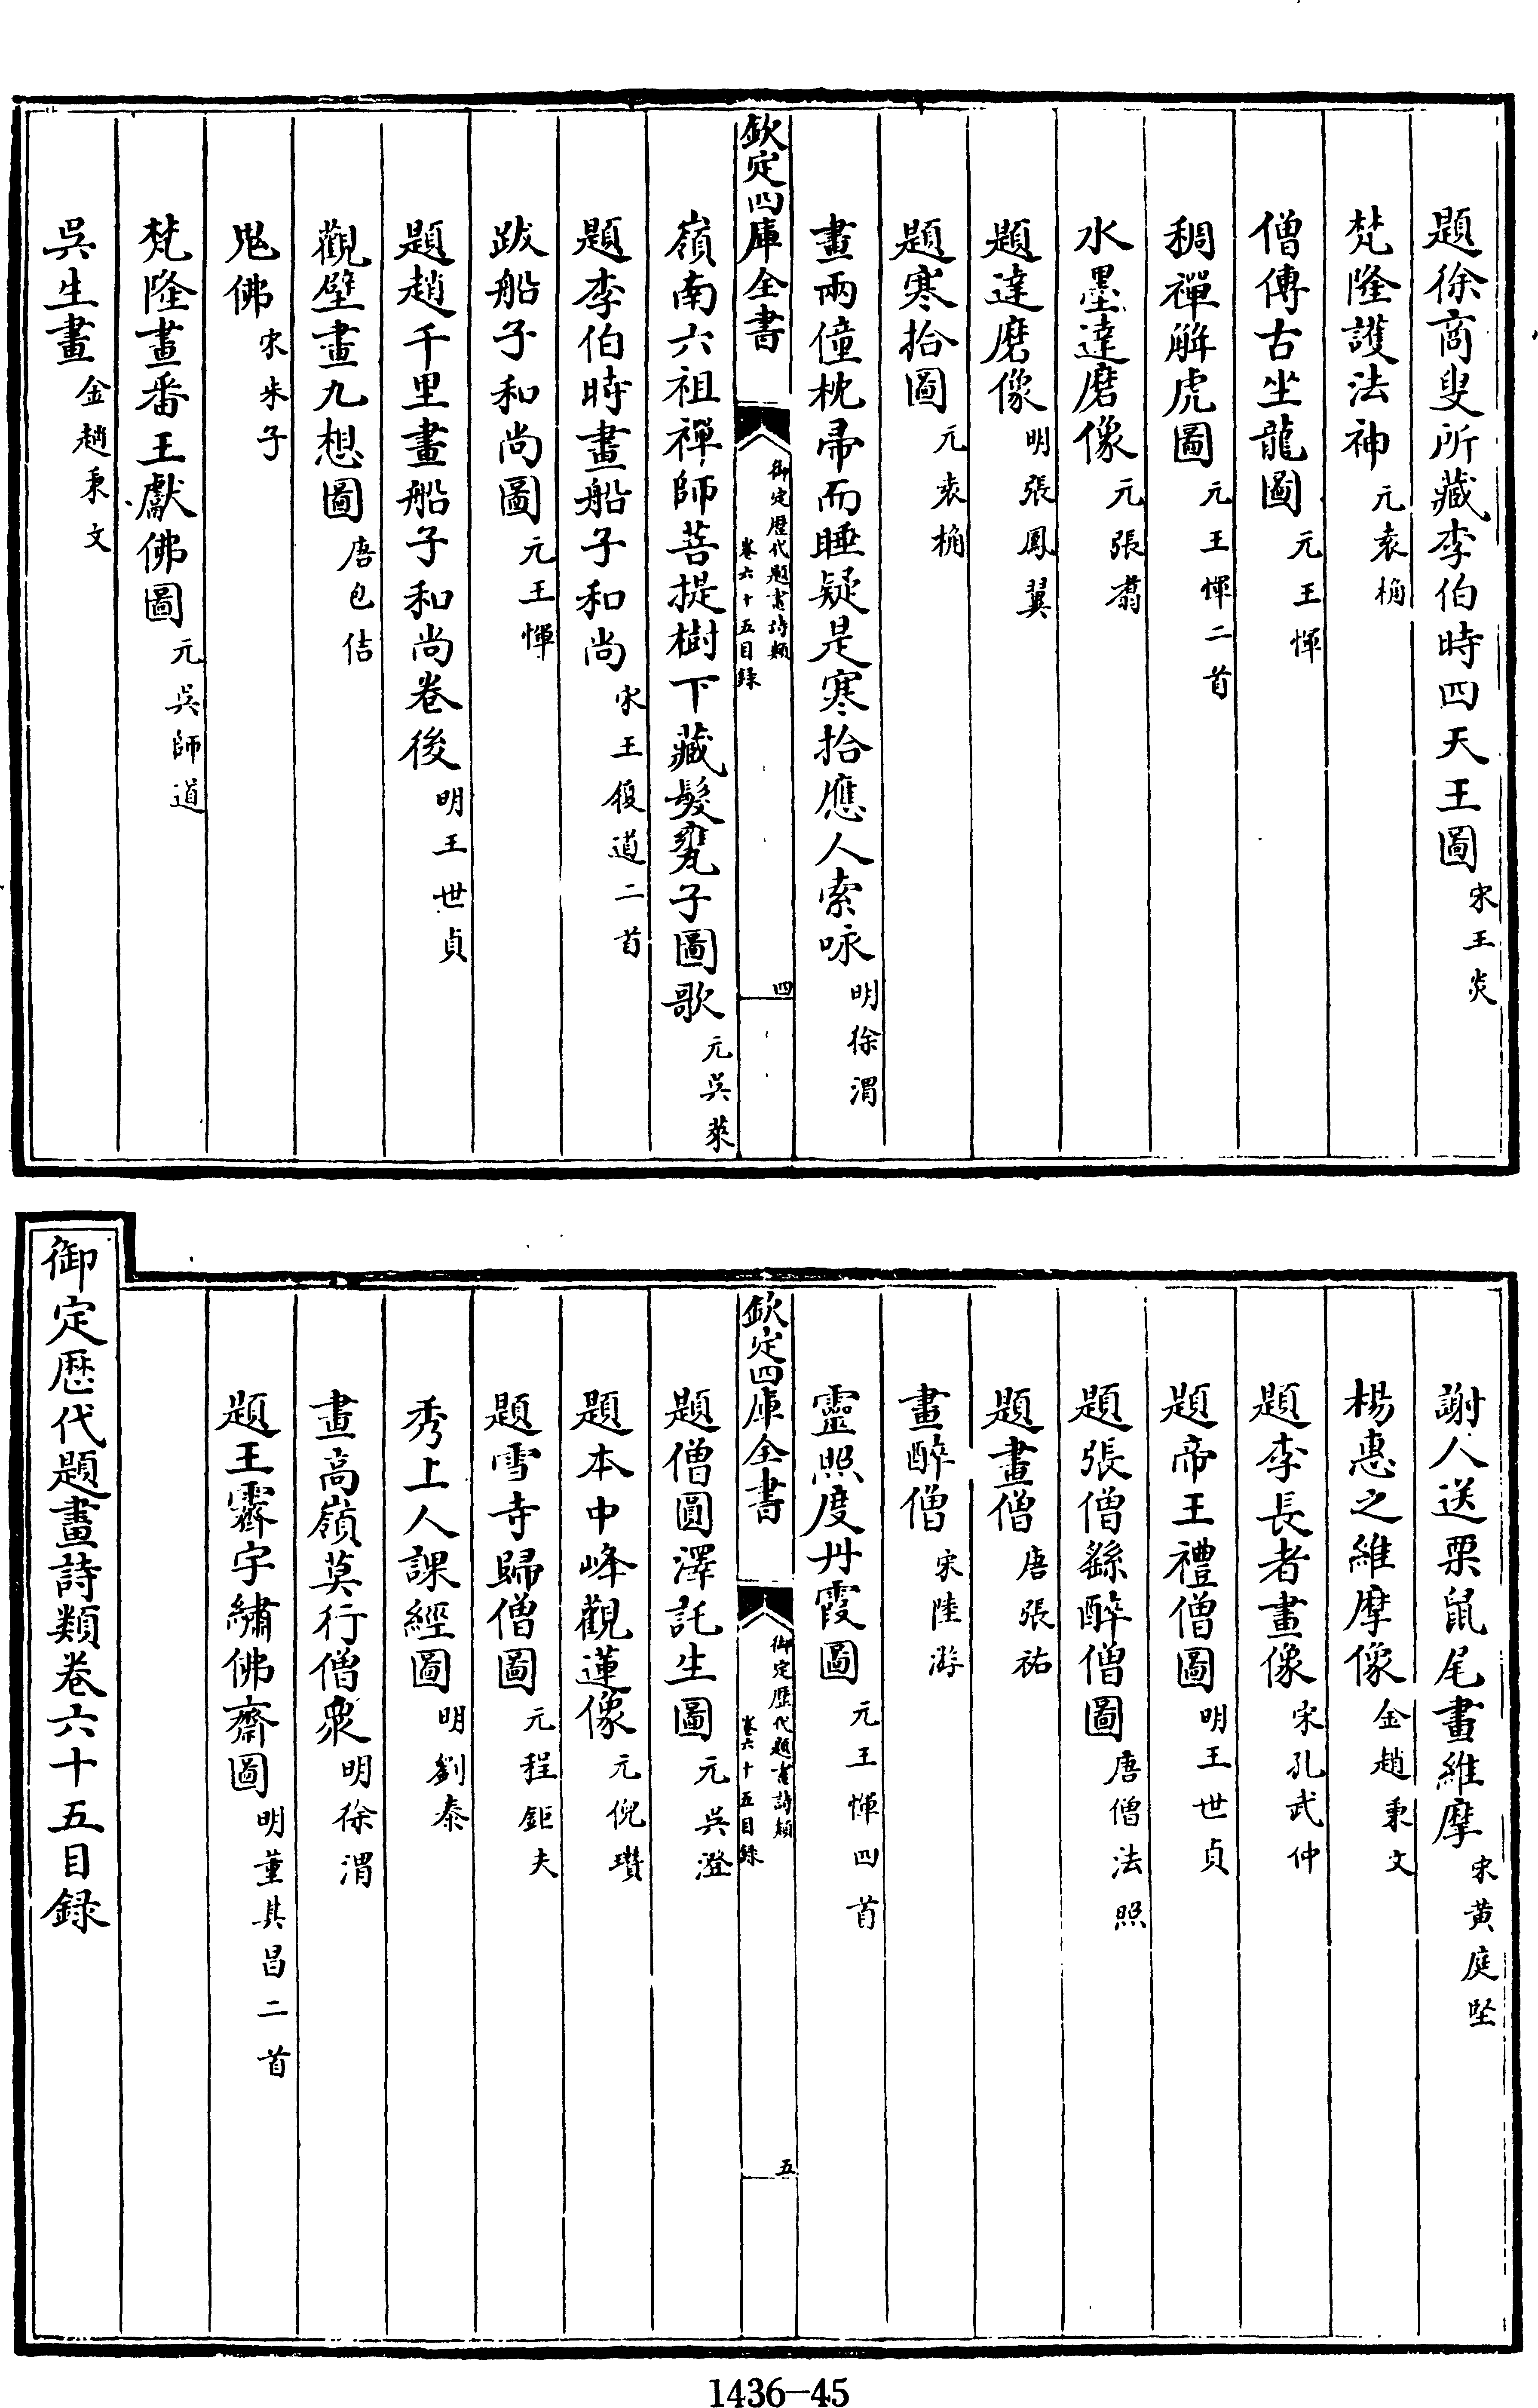 題徐商叟所藏李伯時四天王圖 宋王炎
梵隆護法神 元袁桷
僧傳古坐龍圖 元王惲
稠禪解虎圖 元王惲二首
水墨達磨像 元張翥
題達磨像 明張鳳翼
題寒拾圖 元袁桷
畫兩僮枕帚而睡疑是寒拾應人索咏 明徐渭
欽定四庫全書 御定歷代題畫詩類 卷六十五目錄 四
嶺南六祖禪師菩提樹下藏髮甕子圖歌 元吳萊
題李伯時畫船子和尚 宋王履道二首
跋船子和尚圖 元王惲
題趙千里畫船子和尚卷後 明王世貞
觀壁畫九想圖 唐包佶
鬼佛 宋朱子
梵隆畫番王獻佛圖 元吳師道
吳生畫 金趙秉文
謝人送栗鼠尾畫維摩 宋黃庭堅
楊惠之維摩像 金趙秉文
題李長者畫像 宋孔武仲
題帝王禮僧圖 明王世貞
題張僧繇醉僧圖 唐僧法照
題畫僧 唐張祐
畫醉僧 宋陸游
靈照度丹霞圖 元王惲四首
欽定四庫全書 御定歷代題畫詩類 卷六十五目錄 五
題僧圓澤託生圖 元吳澄
題本中峰觀蓮像 元倪瓚
題雪寺歸僧圖 元程鉅夫
秀上人課經圖 明劉泰
畫高嶺莫行僧衆 明徐渭
題王霽宇繡佛齋圖 明董其昌二首
御定歷代題畫詩類卷六十五目錄
1436-45